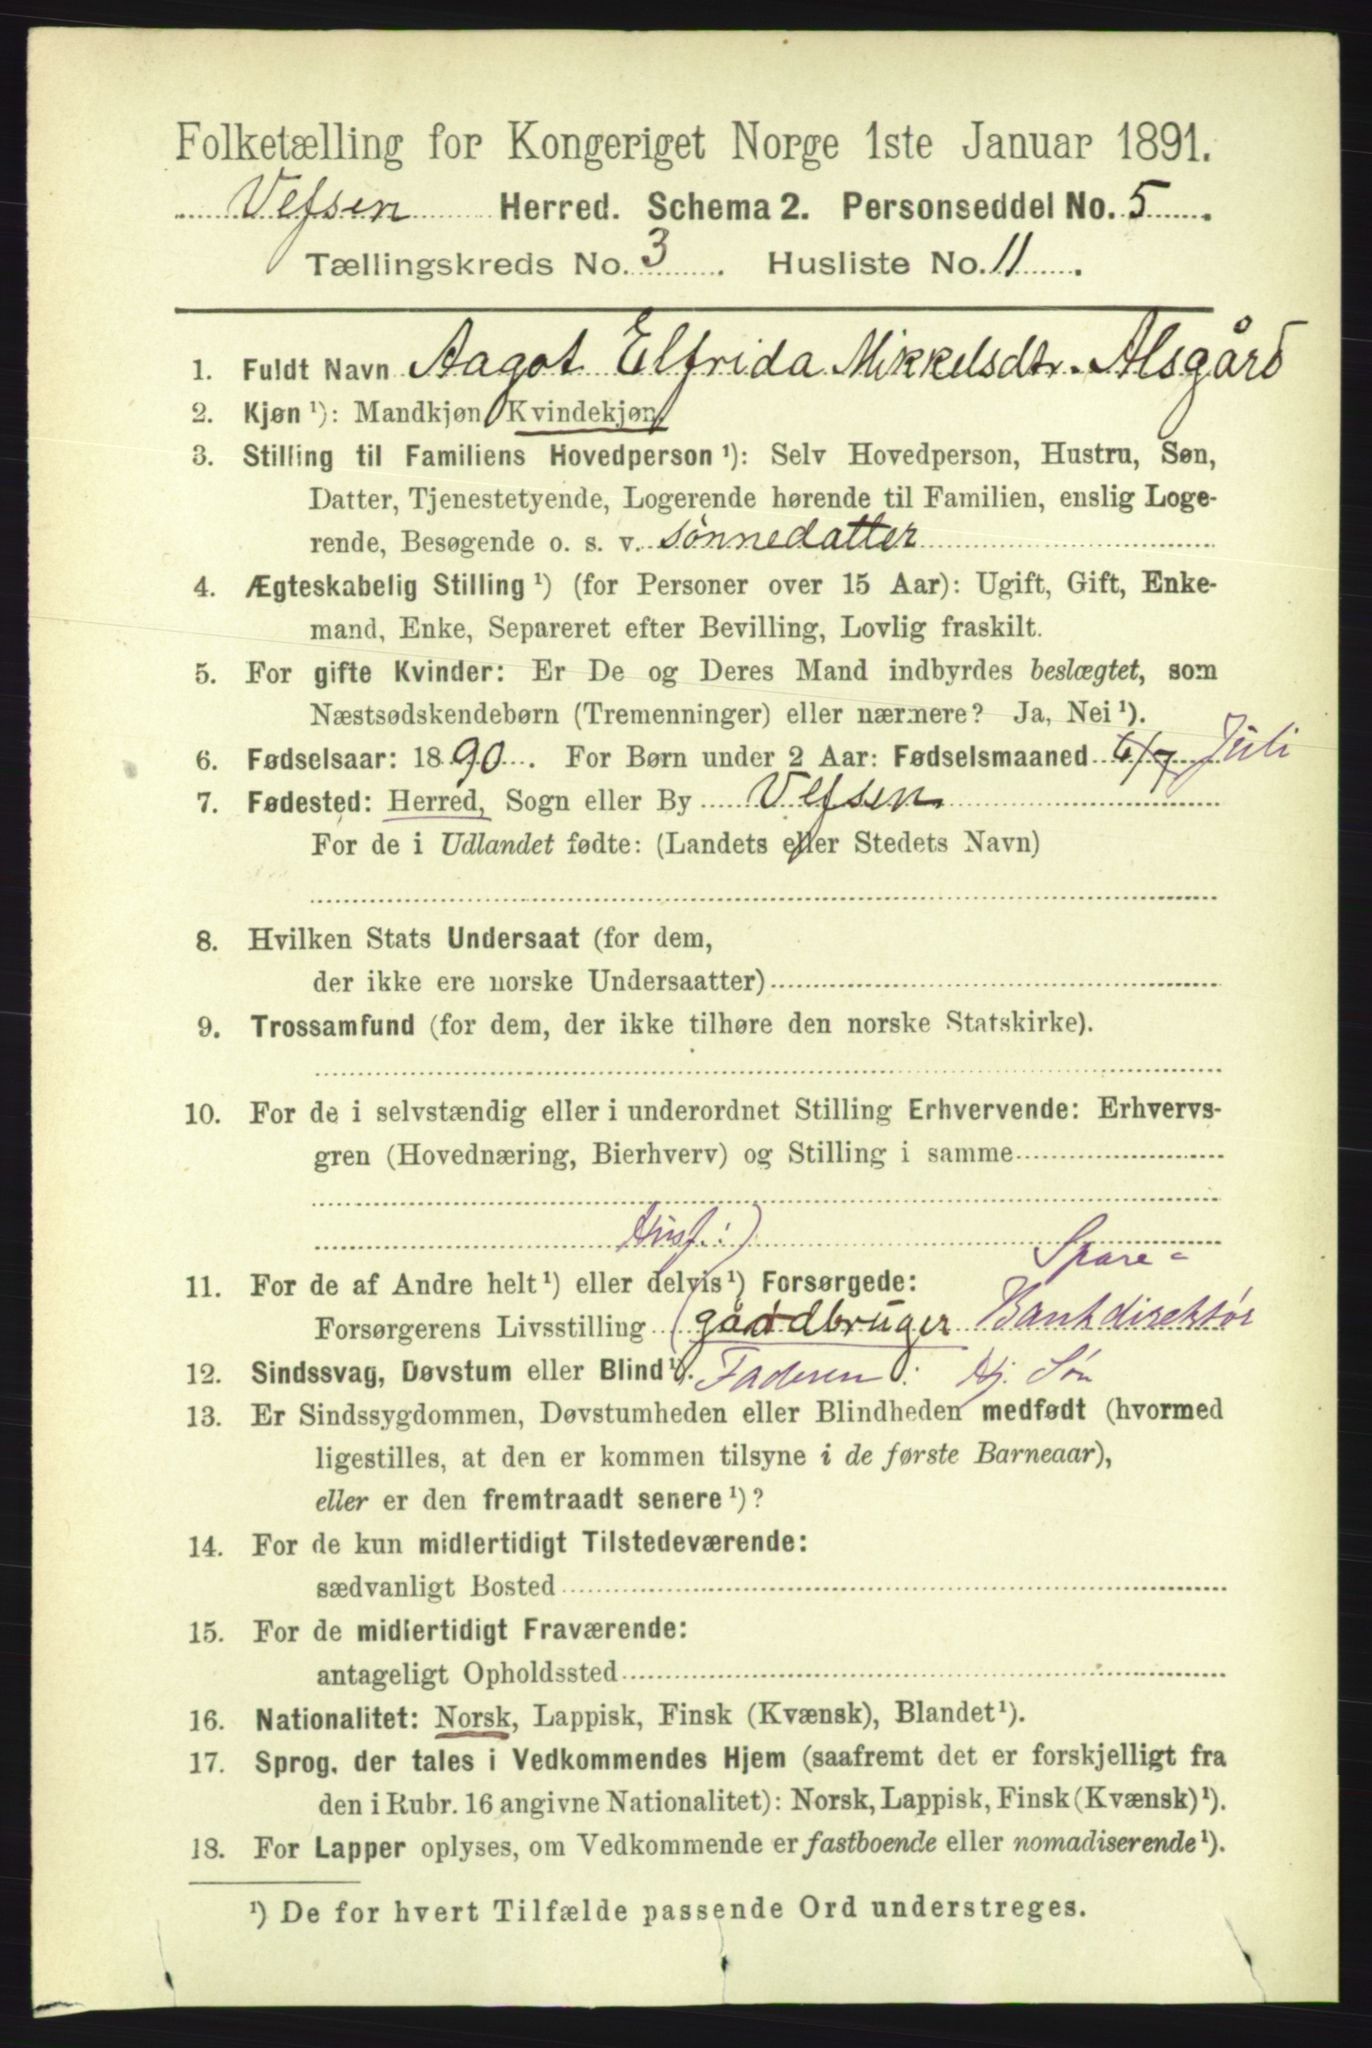 Folketælling for Kongeriget Norge 1ste Januar 1891.
Vefsen Herred. Schema 2. Personseddel No. 5.
Tællingskreds No. 3. Husliste No. 11.
1. Fuldt Navn Aagot Elfrida Mikkelsdtr. Alsgård
2. Kjøn ¹): Mandkjøn, Kvindekjøn.
3. Stilling til Familiens Hovedperson ¹): Selv Hovedperson, Hustru, Søn,
Datter, Tjenestetyende, Logerende hørende til Familien, enslig Loge-
rende, Besøgende o. s. v. sønnedatter
4. Ægteskabelig Stilling ¹) (for Personer over 15 Aar): Ugift, Gift, Enke-
mand, Enke, Separeret efter Bevilling, Lovlig fraskilt.
5. For gifte Kvinder: Er De og Deres Mand indbyrdes beslægtet, som
Næstsødskendebørn (Tremenninger) eller nærmere? Ja, Nei ¹).
6. Fødselsaar: 1890. For Børn under 2 Aar: Fødselsmaaned 6/7 Juli
7. Fødested: Herred, Sogn eller By Vefsen
For de i Udlandet fødte: (Landets eller Stedets Navn)
8. Hvilken Stats Undersaat (for dem,
der ikke ere norske Undersaatter)
9. Trossamfund (for dem, der ikke tilhøre den norske Statskirke).
10. For de i selvstændig eller i underordnet Stilling Erhvervende: Erhvervs-
gren (Hovednæring, Bierhverv) og Stilling i samme
Husf.:) Spare-
11. For de af Andre helt ¹) eller delvis ¹) Forsørgede:
Forsørgerens Livsstilling (gårdbruger Bankdirektør
12. Sindssvag, Døvstum eller Blind ¹). Faderen: Hj. Søn
13. Er Sindssygdommen, Døvstumheden eller Blindheden medfødt (hvormed
ligestilles, at den er kommen tilsyne i de første Barneaar),
eller er den fremtraadt senere ¹)?
14. For de kun midlertidigt Tilstedeværende:
sædvanligt Bosted
15. For de midlertidigt Fraværende:
antageligt Opholdssted
16. Nationalitet: Norsk, Lappisk, Finsk (Kvænsk), Blandet ¹).
17. Sprog, der tales i Vedkommendes Hjem (saafremt det er forskjelligt fra
den i Rubr. 16 angivne Nationalitet): Norsk, Lappisk, Finsk (Kvænsk) ¹).
18. For Lapper oplyses, om Vedkommende er fastboende eller nomadiserende ¹).
¹) De for hvert Tilfælde passende Ord understreges.